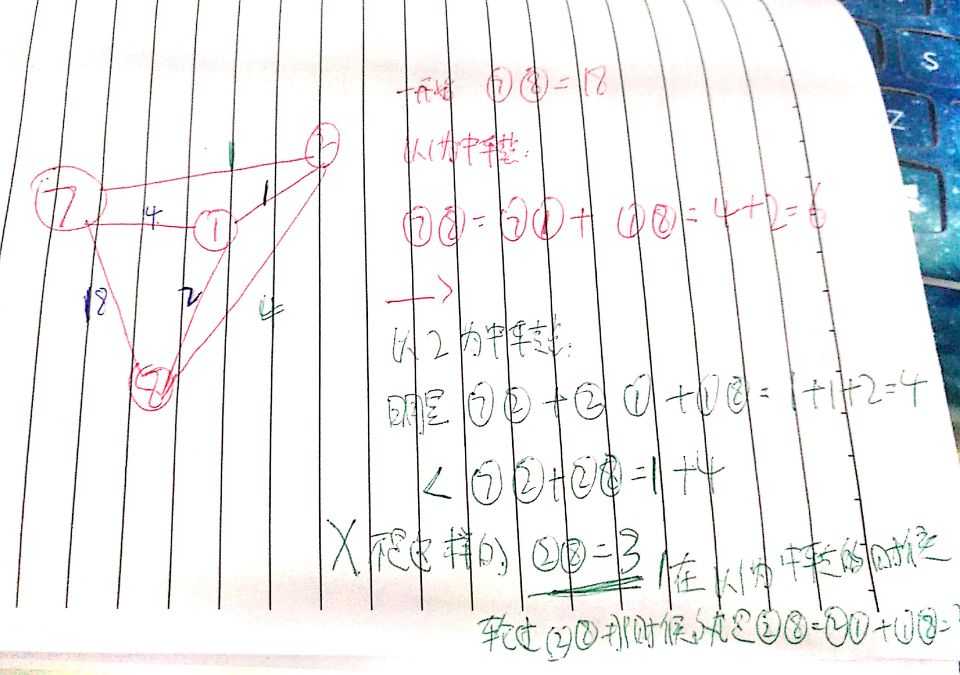 一开始 ⑦⑧=18
以1为中转站:
⑦⑧=⑦①+ ①⑧=4+2=6
→
以2为中转站:
明显 ⑦②+② ①+①⑧=1+1+2=4
< ⑦②+②⑧=1+4
X 不是这样的, ②⑧=3 在以1为中转的时候
轮过②⑧ 那时候 ②⑧=②①+①⑧=3
⑦
1
②
4
①
1
18
2
4
⑧
S
Z